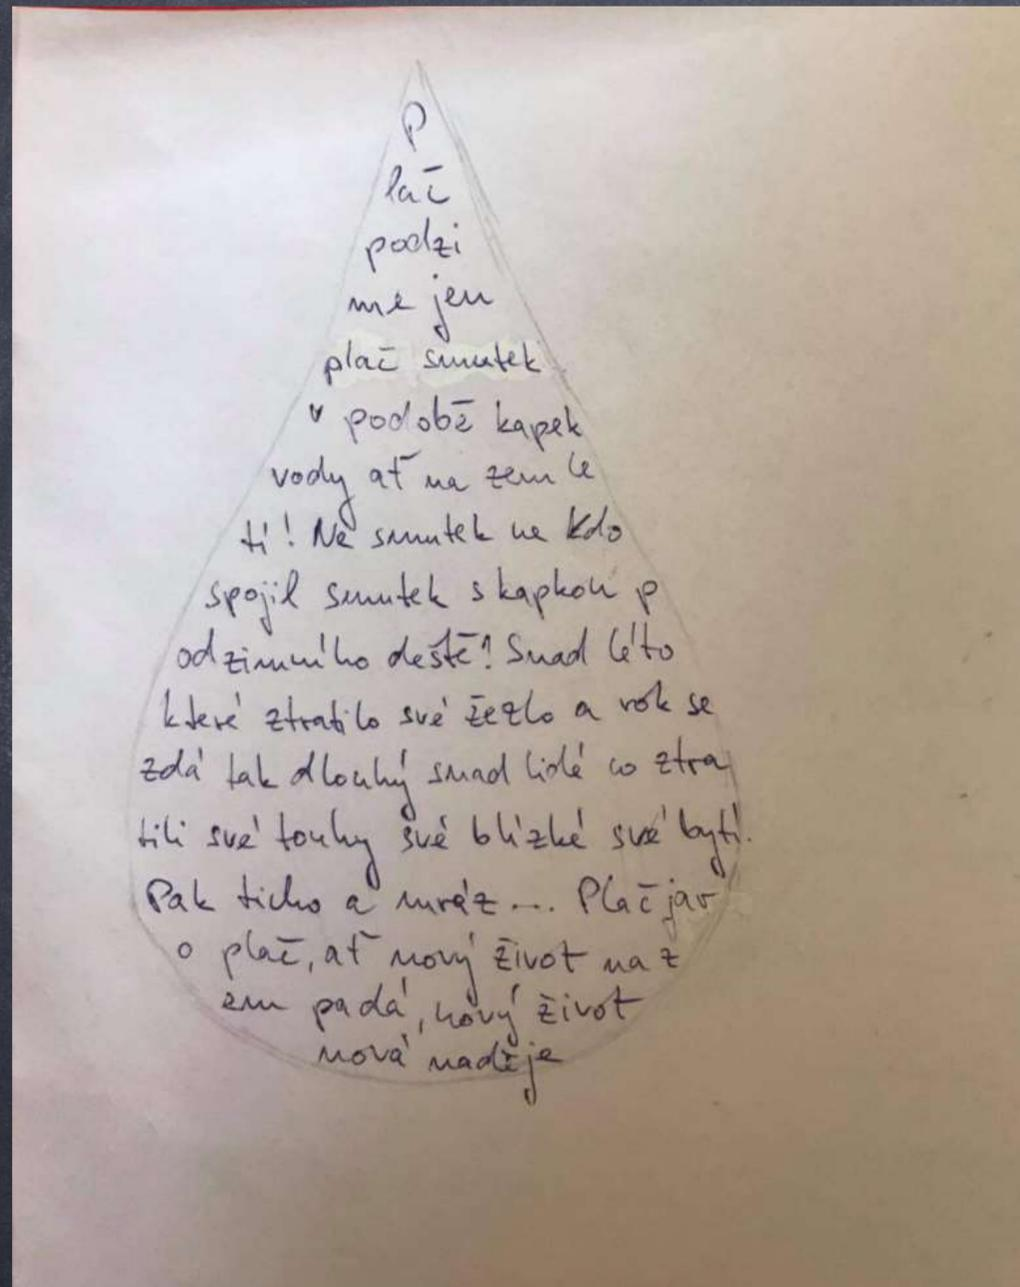 P
lač
podzi
me jen
plač smutek
v podobě kapek
vody ať na zem le
tí! Ne smutek ne kdo
spojil smutek s kapkou p
odzimního deště? Snad léto
které ztratilo své žezlo a rok se
zdá tak dlouhý snad lidé co ztra
tili své touhy své blízké své bytí.
Pak ticho a mráz... Plač jar
o plač, ať nový život na z
em padá, nový život
nová naděje